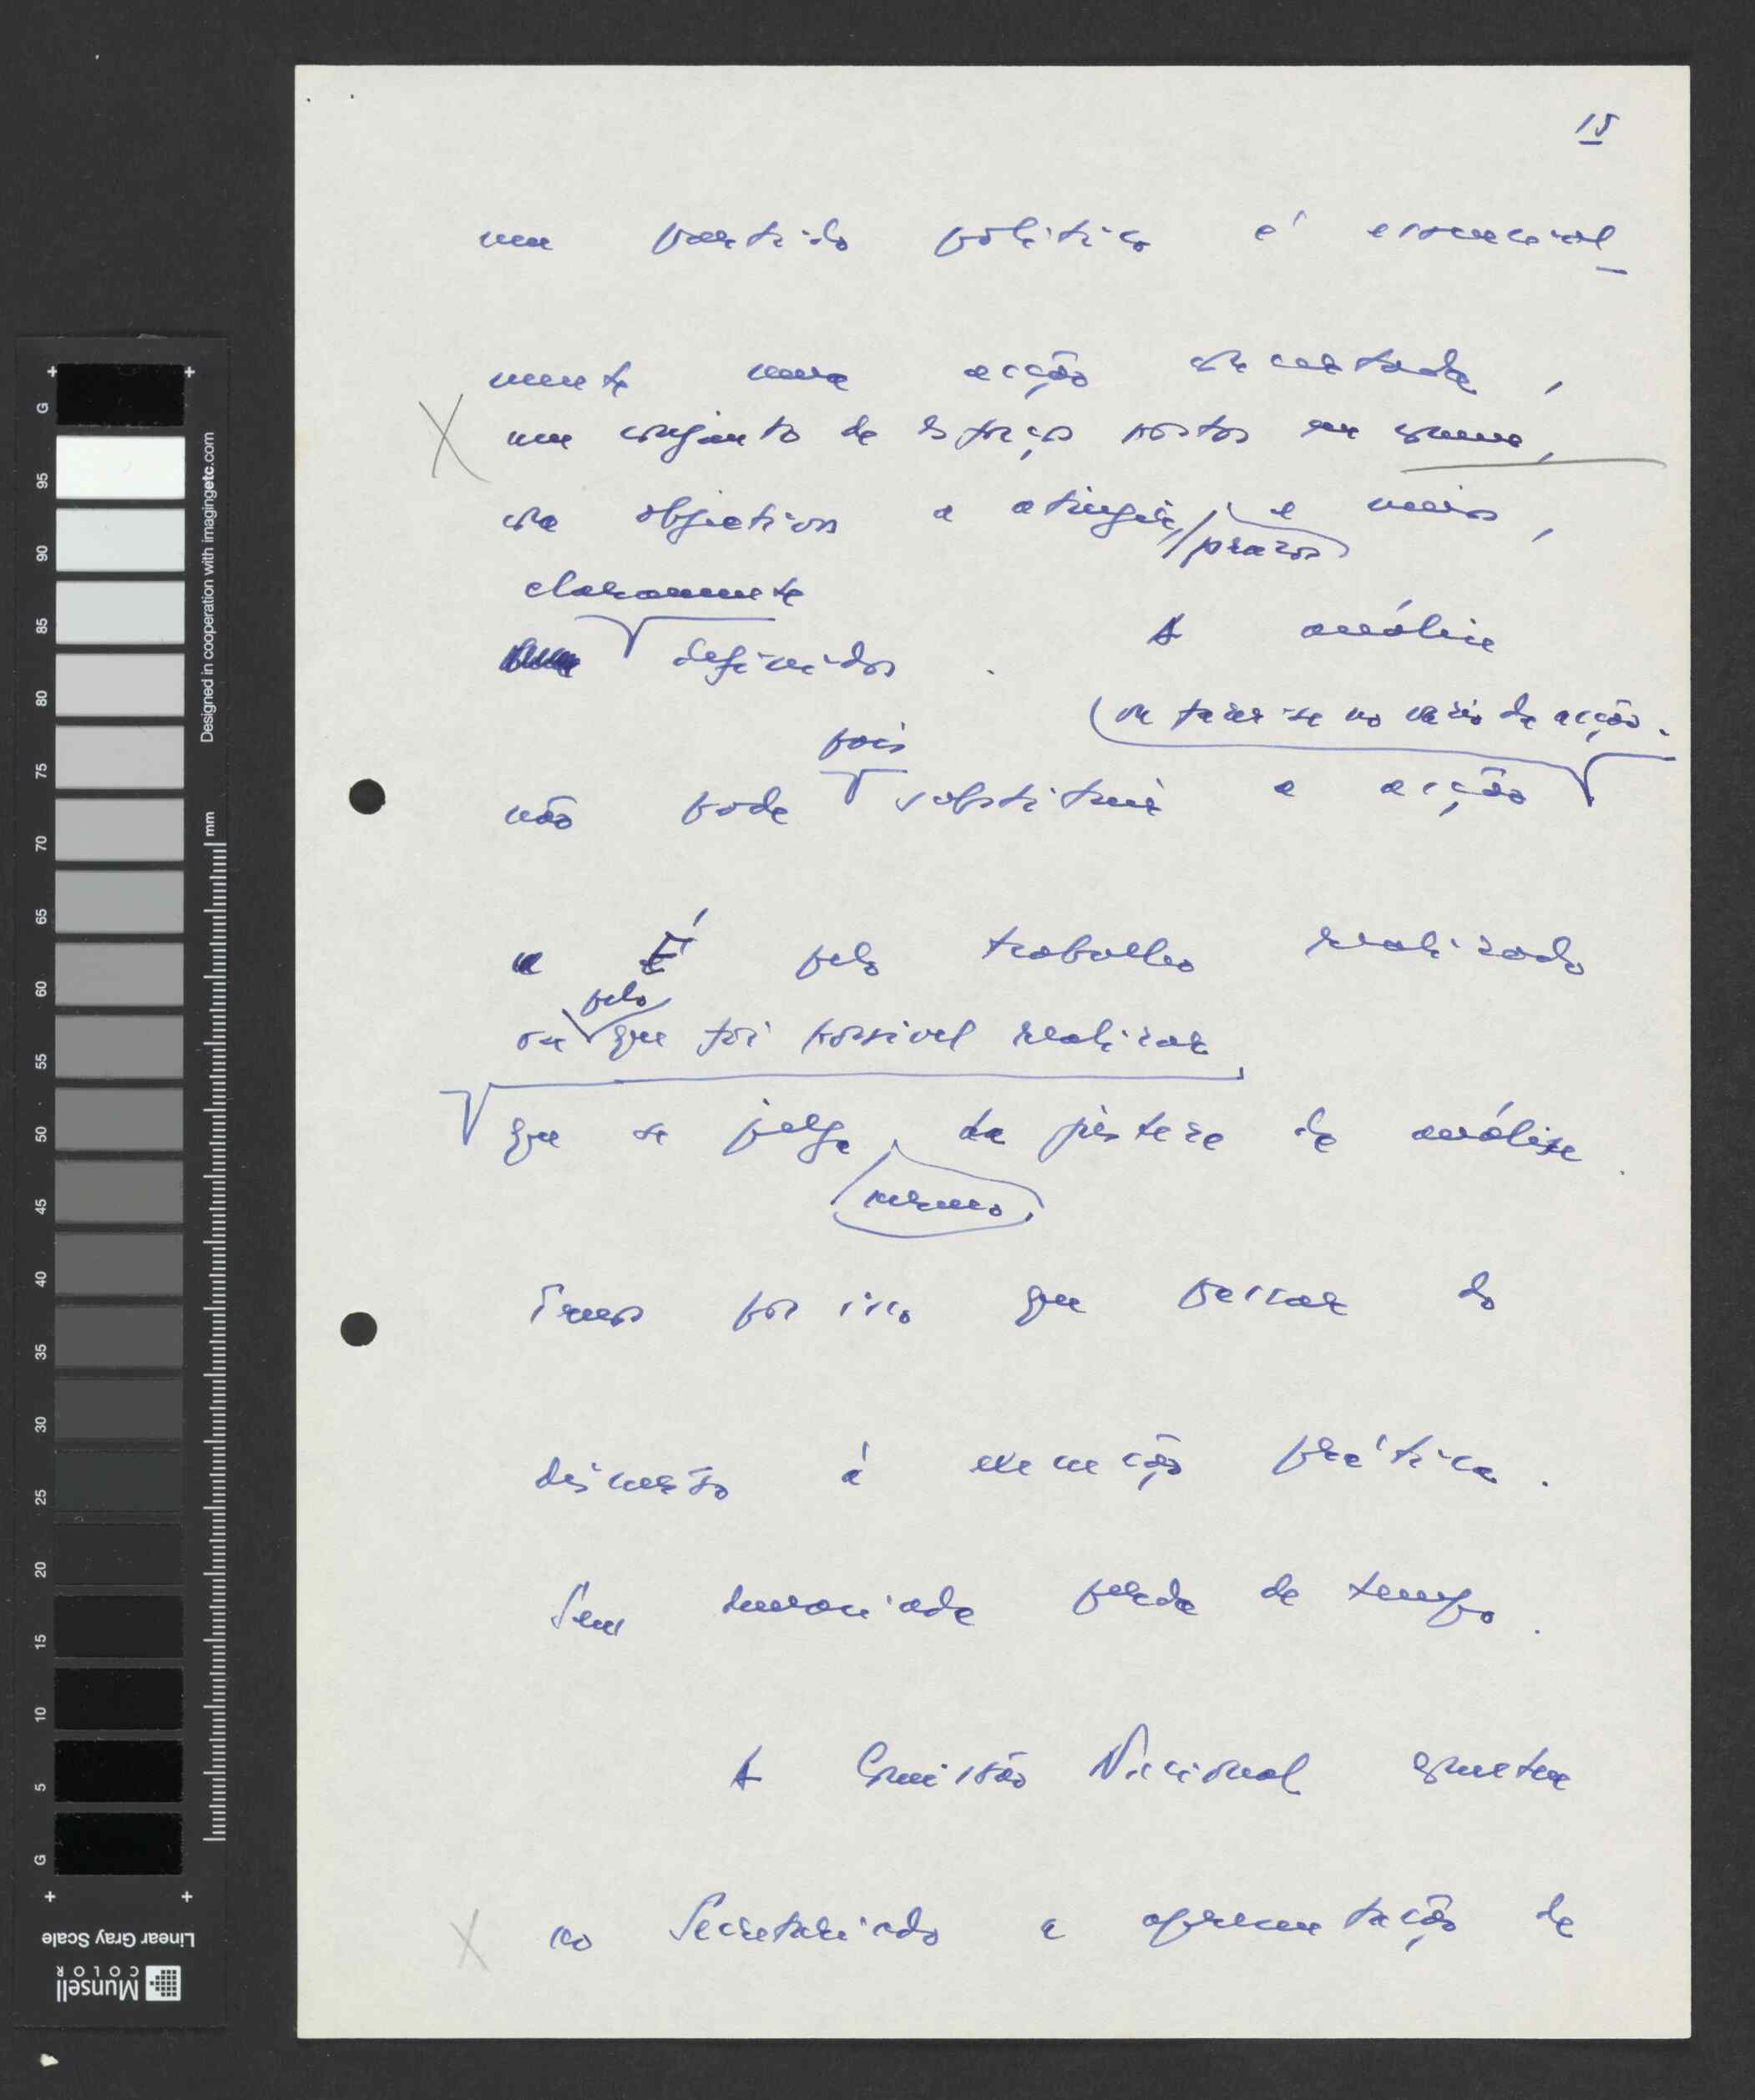 15
um partido político é essencial_
mente uma acção concertada,
X um conjunto de esforços postos em comum,
com objectivos a atingir, prazos e meios,
claramente
definidos. A análise
(ou fazer-se no vazio da acção.
pois
não pode substituir a acção
É pelo trabalho realizado
pelo
ou que foi possível realizar,
que se julga da justeza da análise.
mesmo,
Temos por isso que passar do
discurso à execução prática.
Sem demasiada perda de tempo.
A Comissão Nacional
X ao Secretariado a apresentação de
G 95 90 85 80 75 70 65 60 55 50 45 40 35 30 25 20 15 10 5 G
Designed in cooperation with imagingetc.com
70 mm
Linear Gray Scale
Munsell
COLOR